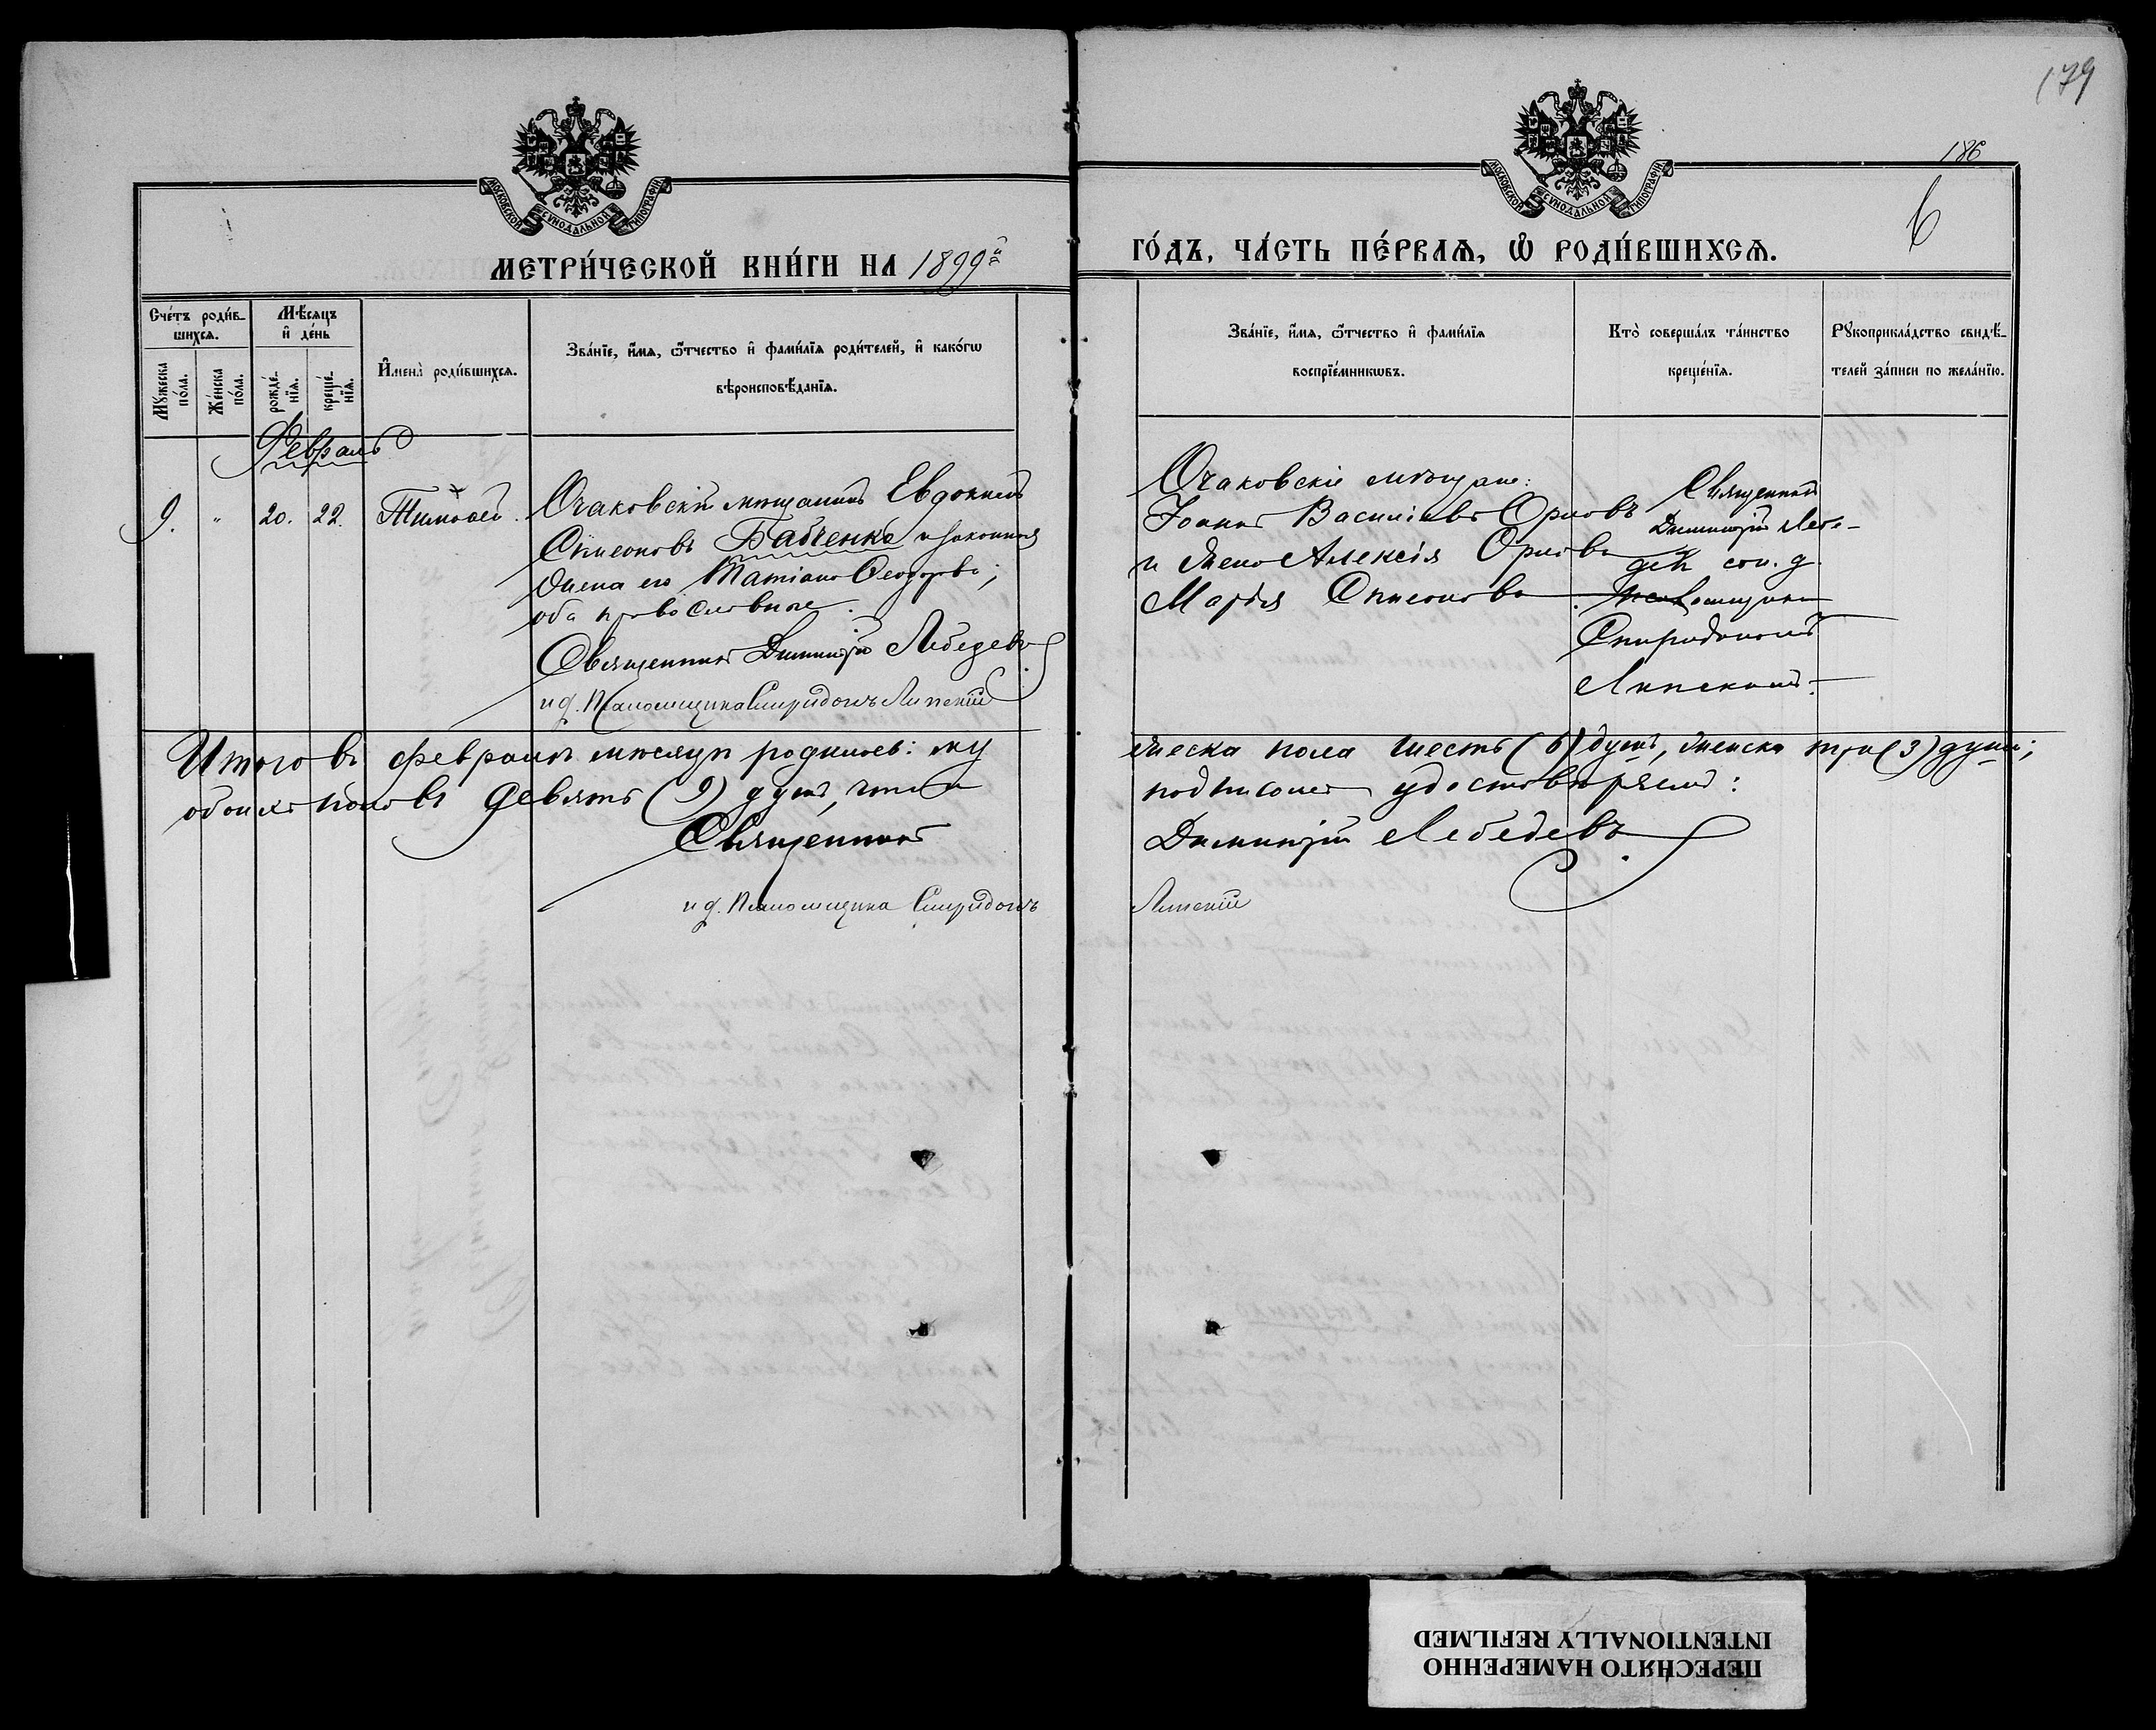 179
186
6
МОСКОВСКОЙ СѴНОДАЛЬНОЙ ТИПОГРАФІИ.
МОСКОВСКОЙ СѴНОДАЛЬНОЙ ТИПОГРАФІИ.
МЕТРИ́ЧЕСКОЙ КНИ́ГИ НА 1899й
ГО́ДЪ, ЧА́СТЬ ПЕ́РВАѦ, Ѿ РОДИ́ВШИХСѦ.
Сче́тъ роди́в-
шихсѧ.
Мѣ́сѧцъ
и҆ де́нь
Мꙋ́жеска
по́ла.
Же́нска
по́ла.
рожде́-
нїѧ.
креще́-
нїѧ.
И҆мена̀ роди́вшихсѧ.
Зва́нїе, и҆́мѧ, ѻ҆́тчество и҆ фамѝлїѧ роди́телей, и҆ како́гѡ
вѣроисповѣ́данїѧ.
Зва́нїе, и҆́мѧ, ѻ҆́тчество и҆ фами́лїѧ
воспрїе́мникѡвъ.
Кто̀ соверша́лъ та́инство
креще́нїѧ.
Рꙋкоприкла́дство свидѣ́-
телей за́писи по жела́нїю.
Февраль
9. " 20. 22. Тимоѳей.
Очаковскій мѣщанинъ Евдокимъ
Симеоновъ Бабченко и законная
жена его Татіана Ѳеодорова;
оба православные.
Священникъ Димитрій Лебедевъ
и д. Псаломщика Спиридонъ Липскій
Очаковскіе мѣщане:
Іоаннъ Василіевъ Орловъ
и жена Алексія Орлова
Марѳа Симеонова
Священникъ
Димитрій Лебе-
девъ сои. д.
Псаломщика
Спиридономъ
Липскимъ.
Итого въ февралѣ мѣсяцѣ родилось: му
жеска пола шесть (6) душъ, женска три (3) души;
обоихъ половъ девять (9) душъ, что и
подписомъ удостовѣряемъ:
Священникъ
Димитрій Лебедевъ
и д. Псаломщика Спиридонъ
Липскій
ПЕРЕСНЯТО НАМЕРЕННО
INTENTIONALLY REFILMED